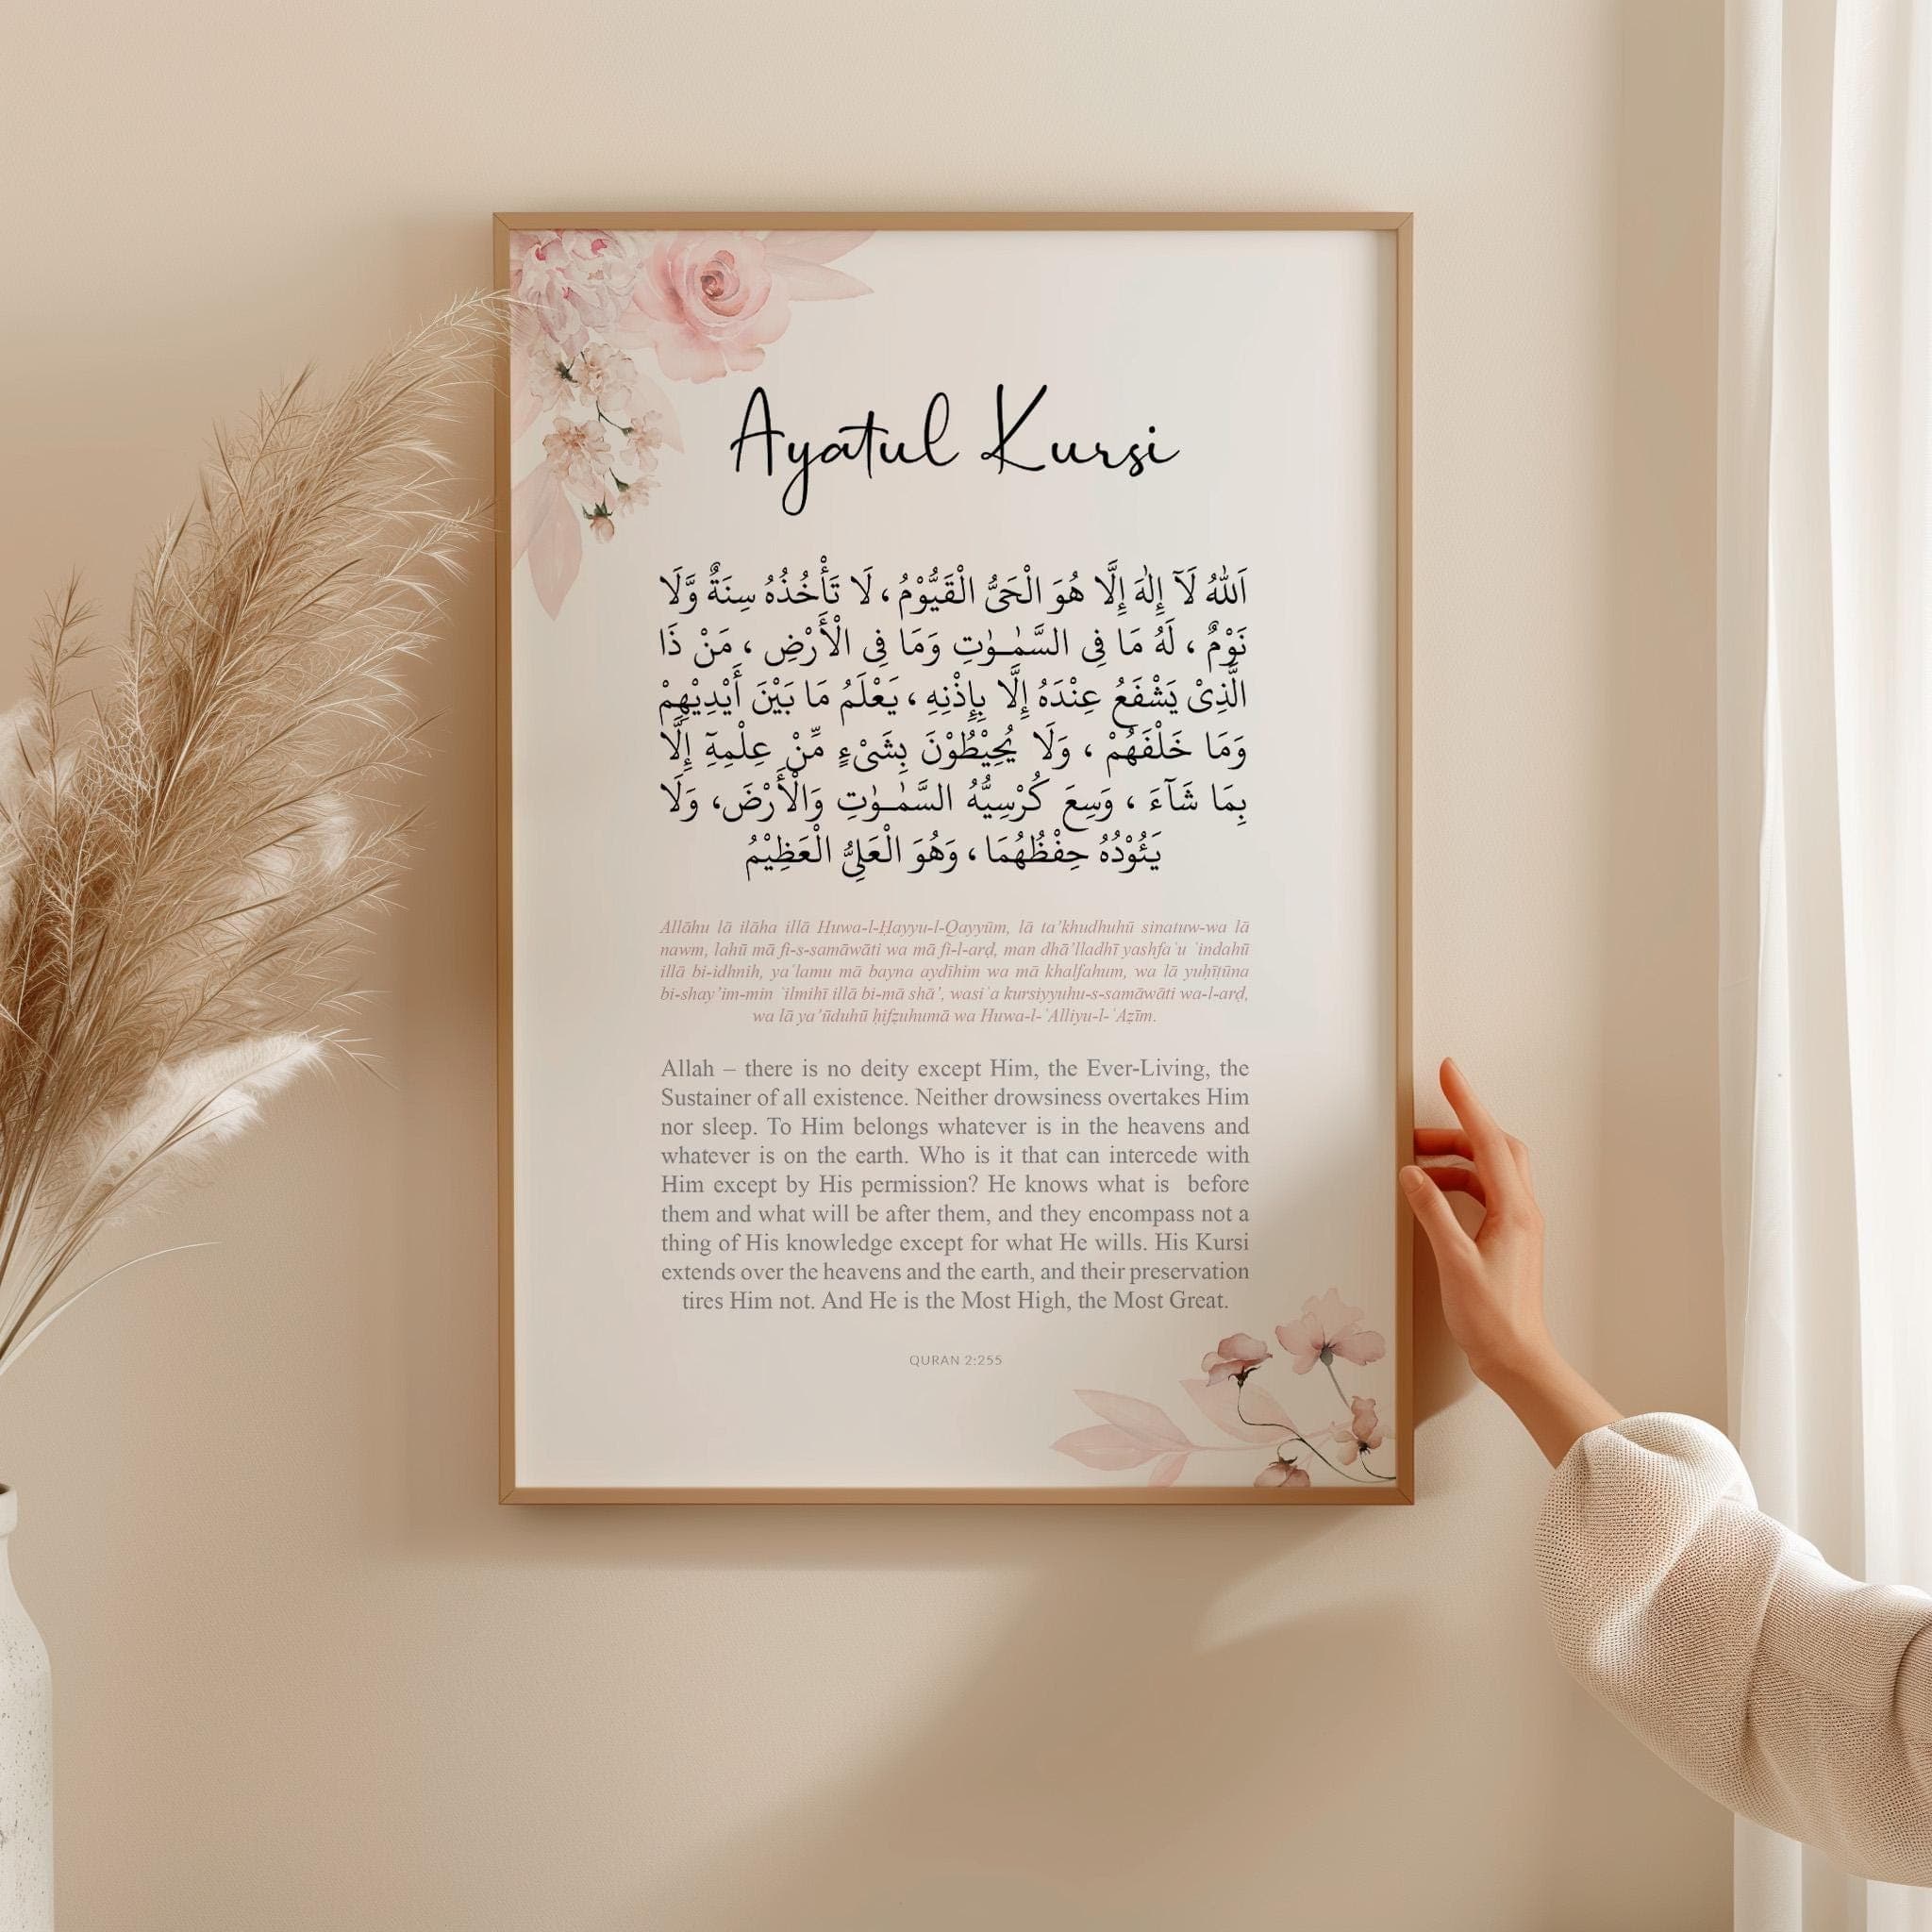 Ayatul Kursi
اَللّٰهُ لَآ إِلٰهَ إِلَّا هُوَ الْحَىُّ الْقَيُّوْمُ، لَا تَأْخُذُهُ سِنَةٌ وَّلَا
نَوْمٌ ، لَهُ مَا فِى السَّمٰـوٰتِ وَمَا فِى الْأَرْضِ ، مَنْ ذَا
الَّذِىْ يَشْفَعُ عِنْدَهُ إِلَّا بِإِذْنِهِ ، يَعْلَمُ مَا بَيْنَ أَيْدِيْهِمْ
وَمَا خَلْفَهُمْ ، وَلَا يُحِيْطُوْنَ بِشَىْءٍ مِّنْ عِلْمِهٓ إِلَّا
بِمَا شَآءَ ، وَسِعَ كُرْسِيُّهُ السَّمٰـوٰتِ وَالْأَرْضَ، وَلَا
يَئُوْدُهُ حِفْظُهُمَا ، وَهُوَ الْعَلِىُّ الْعَظِيْمُ
Allāhu lā ilāha illā Huwa-l-Ḥayyu-l-Qayyūm, lā ta’khudhuhū sinatuw-wa lā
nawm, lahū mā fi-s-samāwāti wa mā fi-l-arḍ, man dhā’lladhī yashfaʿu ʿindahū
illā bi-idhnih, yaʿlamu mā bayna aydīhim wa mā khalfahum, wa lā yuḥīṭūna
bi-shay’im-min ʿilmihī illā bi-mā shā’, wasiʿa kursiyyuhu-s-samāwāti wa-l-arḍ,
wa lā ya’ūduhū ḥifẓuhumā wa Huwa-l-ʿAlliyu-l-ʿAẓīm.
Allah – there is no deity except Him, the Ever-Living, the
Sustainer of all existence. Neither drowsiness overtakes Him
nor sleep. To Him belongs whatever is in the heavens and
whatever is on the earth. Who is it that can intercede with
Him except by His permission? He knows what is before
them and what will be after them, and they encompass not a
thing of His knowledge except for what He wills. His Kursi
extends over the heavens and the earth, and their preservation
tires Him not. And He is the Most High, the Most Great.
QURAN 2:255